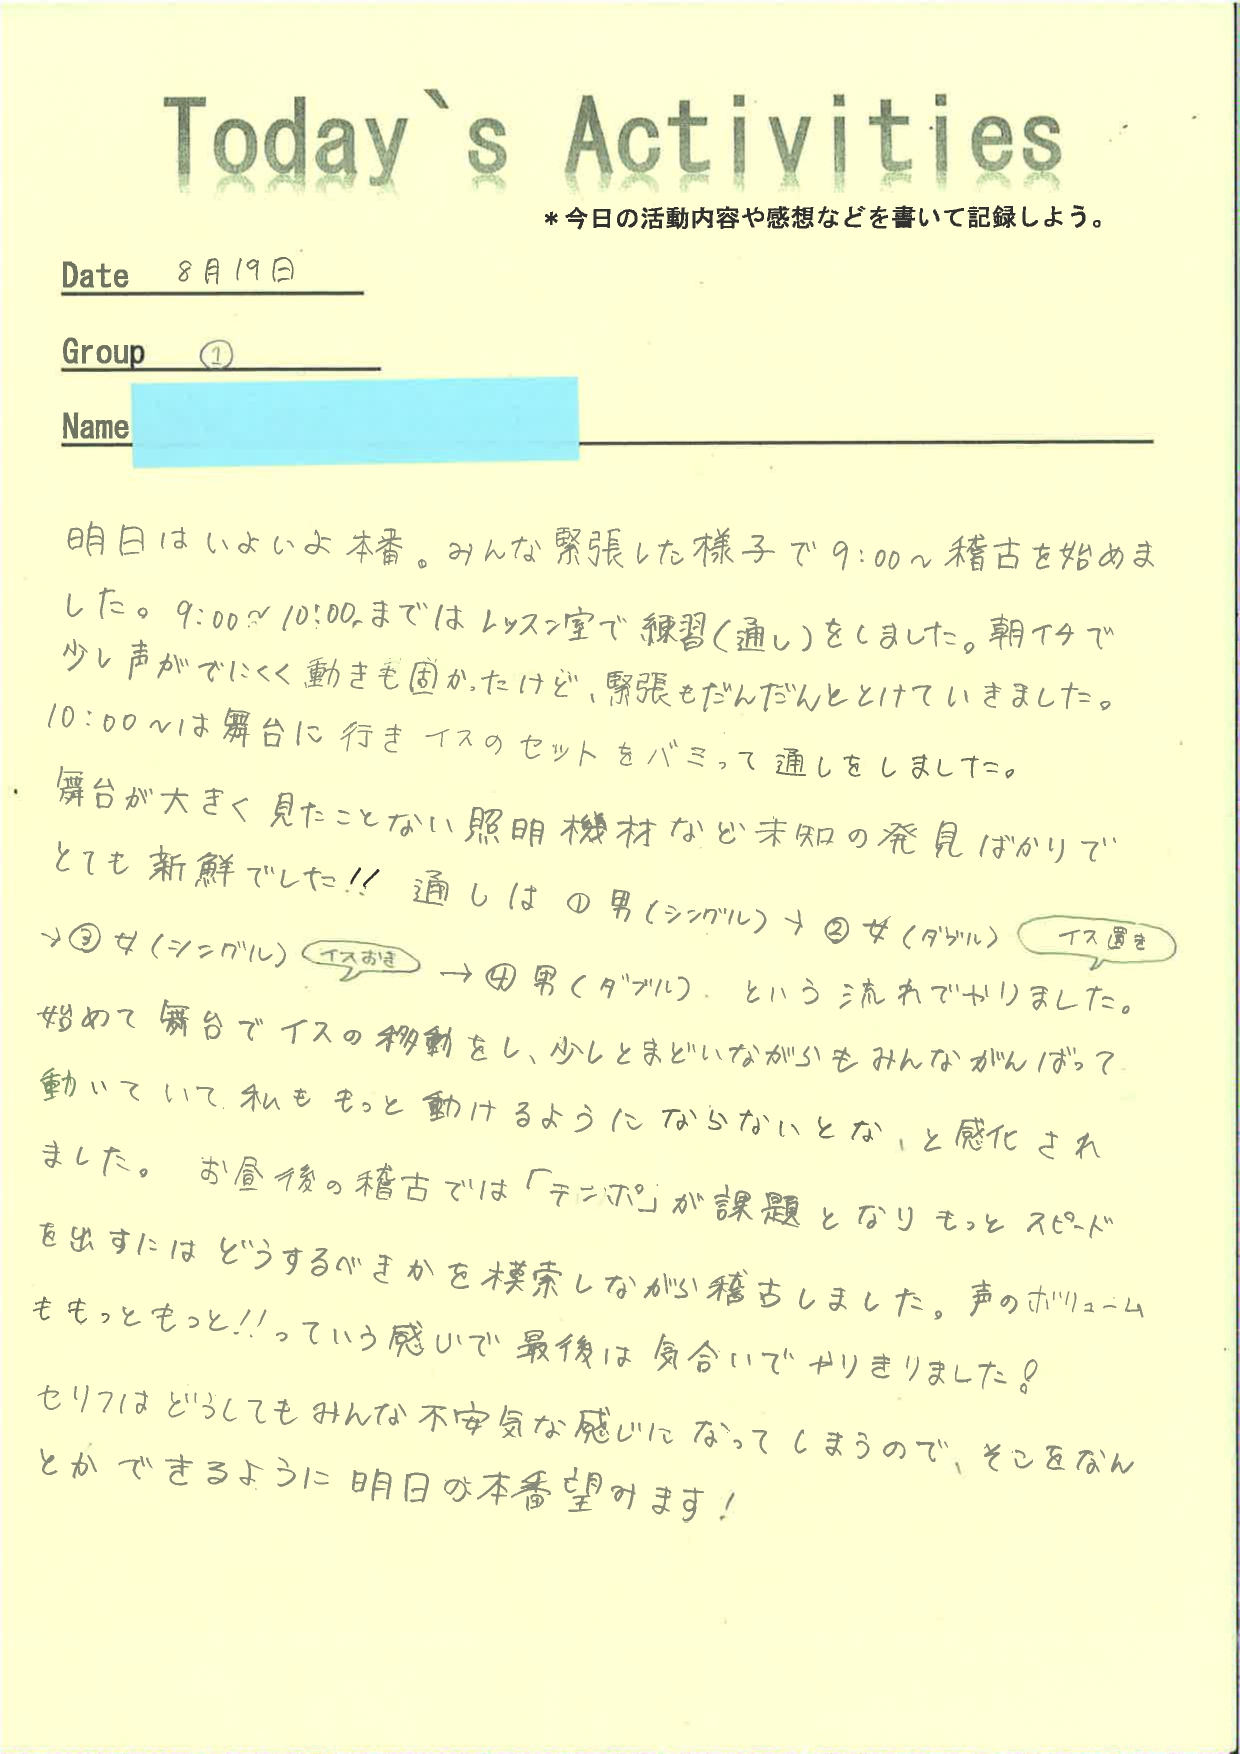 Today`s Activities
＊今日の活動内容や感想などを書いて記録しよう。
Date 8月19日
Group ①
Name
明日はいよいよ本番。みんな緊張した様子で9:00~稽古を始めま
した。9:00~10:00まではレッスン室で練習(通し)をしました。朝イチで
少し声がでにくく動きも固かったけど、緊張もだんだんととけていきました。
10:00~は舞台に行きイスのセットをバミって通しをしました。
舞台が大きく見たことない照明機材など未知の発見ばかりで
とても新鮮でした!! 通しは①男(シングル)→②女(ダブル) イス置き
→③女(シングル) イスおき →④男(ダブル). という流れでやりました。
始めて舞台でイスの移動をし、少しとまどいながらもみんながんばって
動いていて私ももっと動けるようにならないとな、と感化され
ました。 お昼後の稽古では「テンポ」が課題となりもっとスピード
を出すにはどうするべきかを模索しながら稽古しました。声のボリューム
ももっともっと!!っていう感じで最後は気合いでやりきりました!
セリフはどうしてもみんな不安気な感じになってしまうので、そこをなん
とかできるように明日の本番望みます!